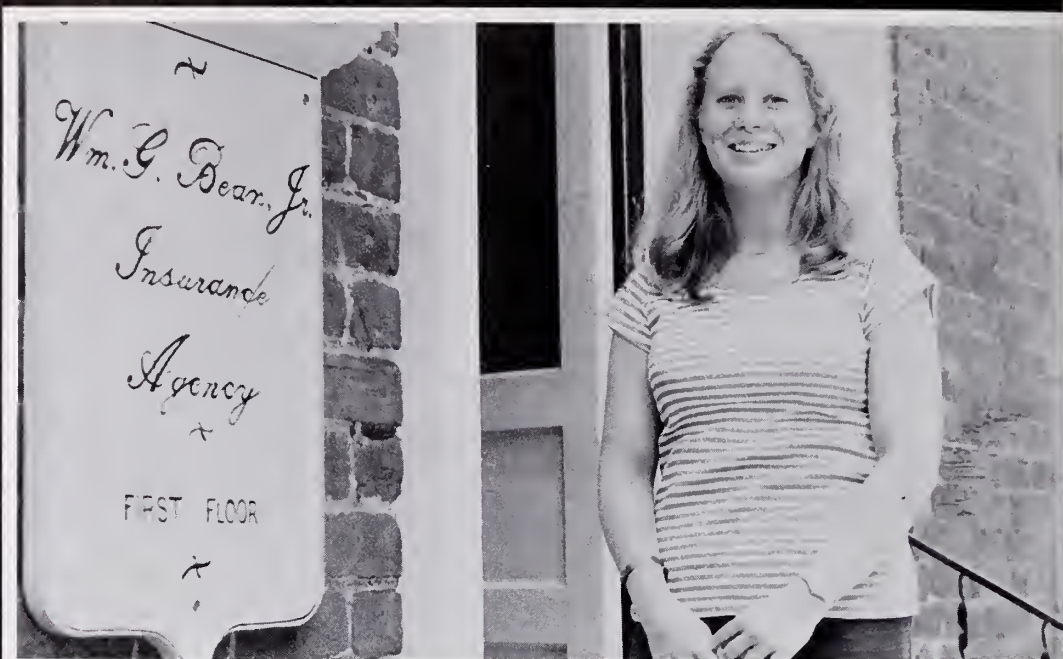 Wm. G. Bean, Jr.
Insurance
Agency
FIRST FLOOR